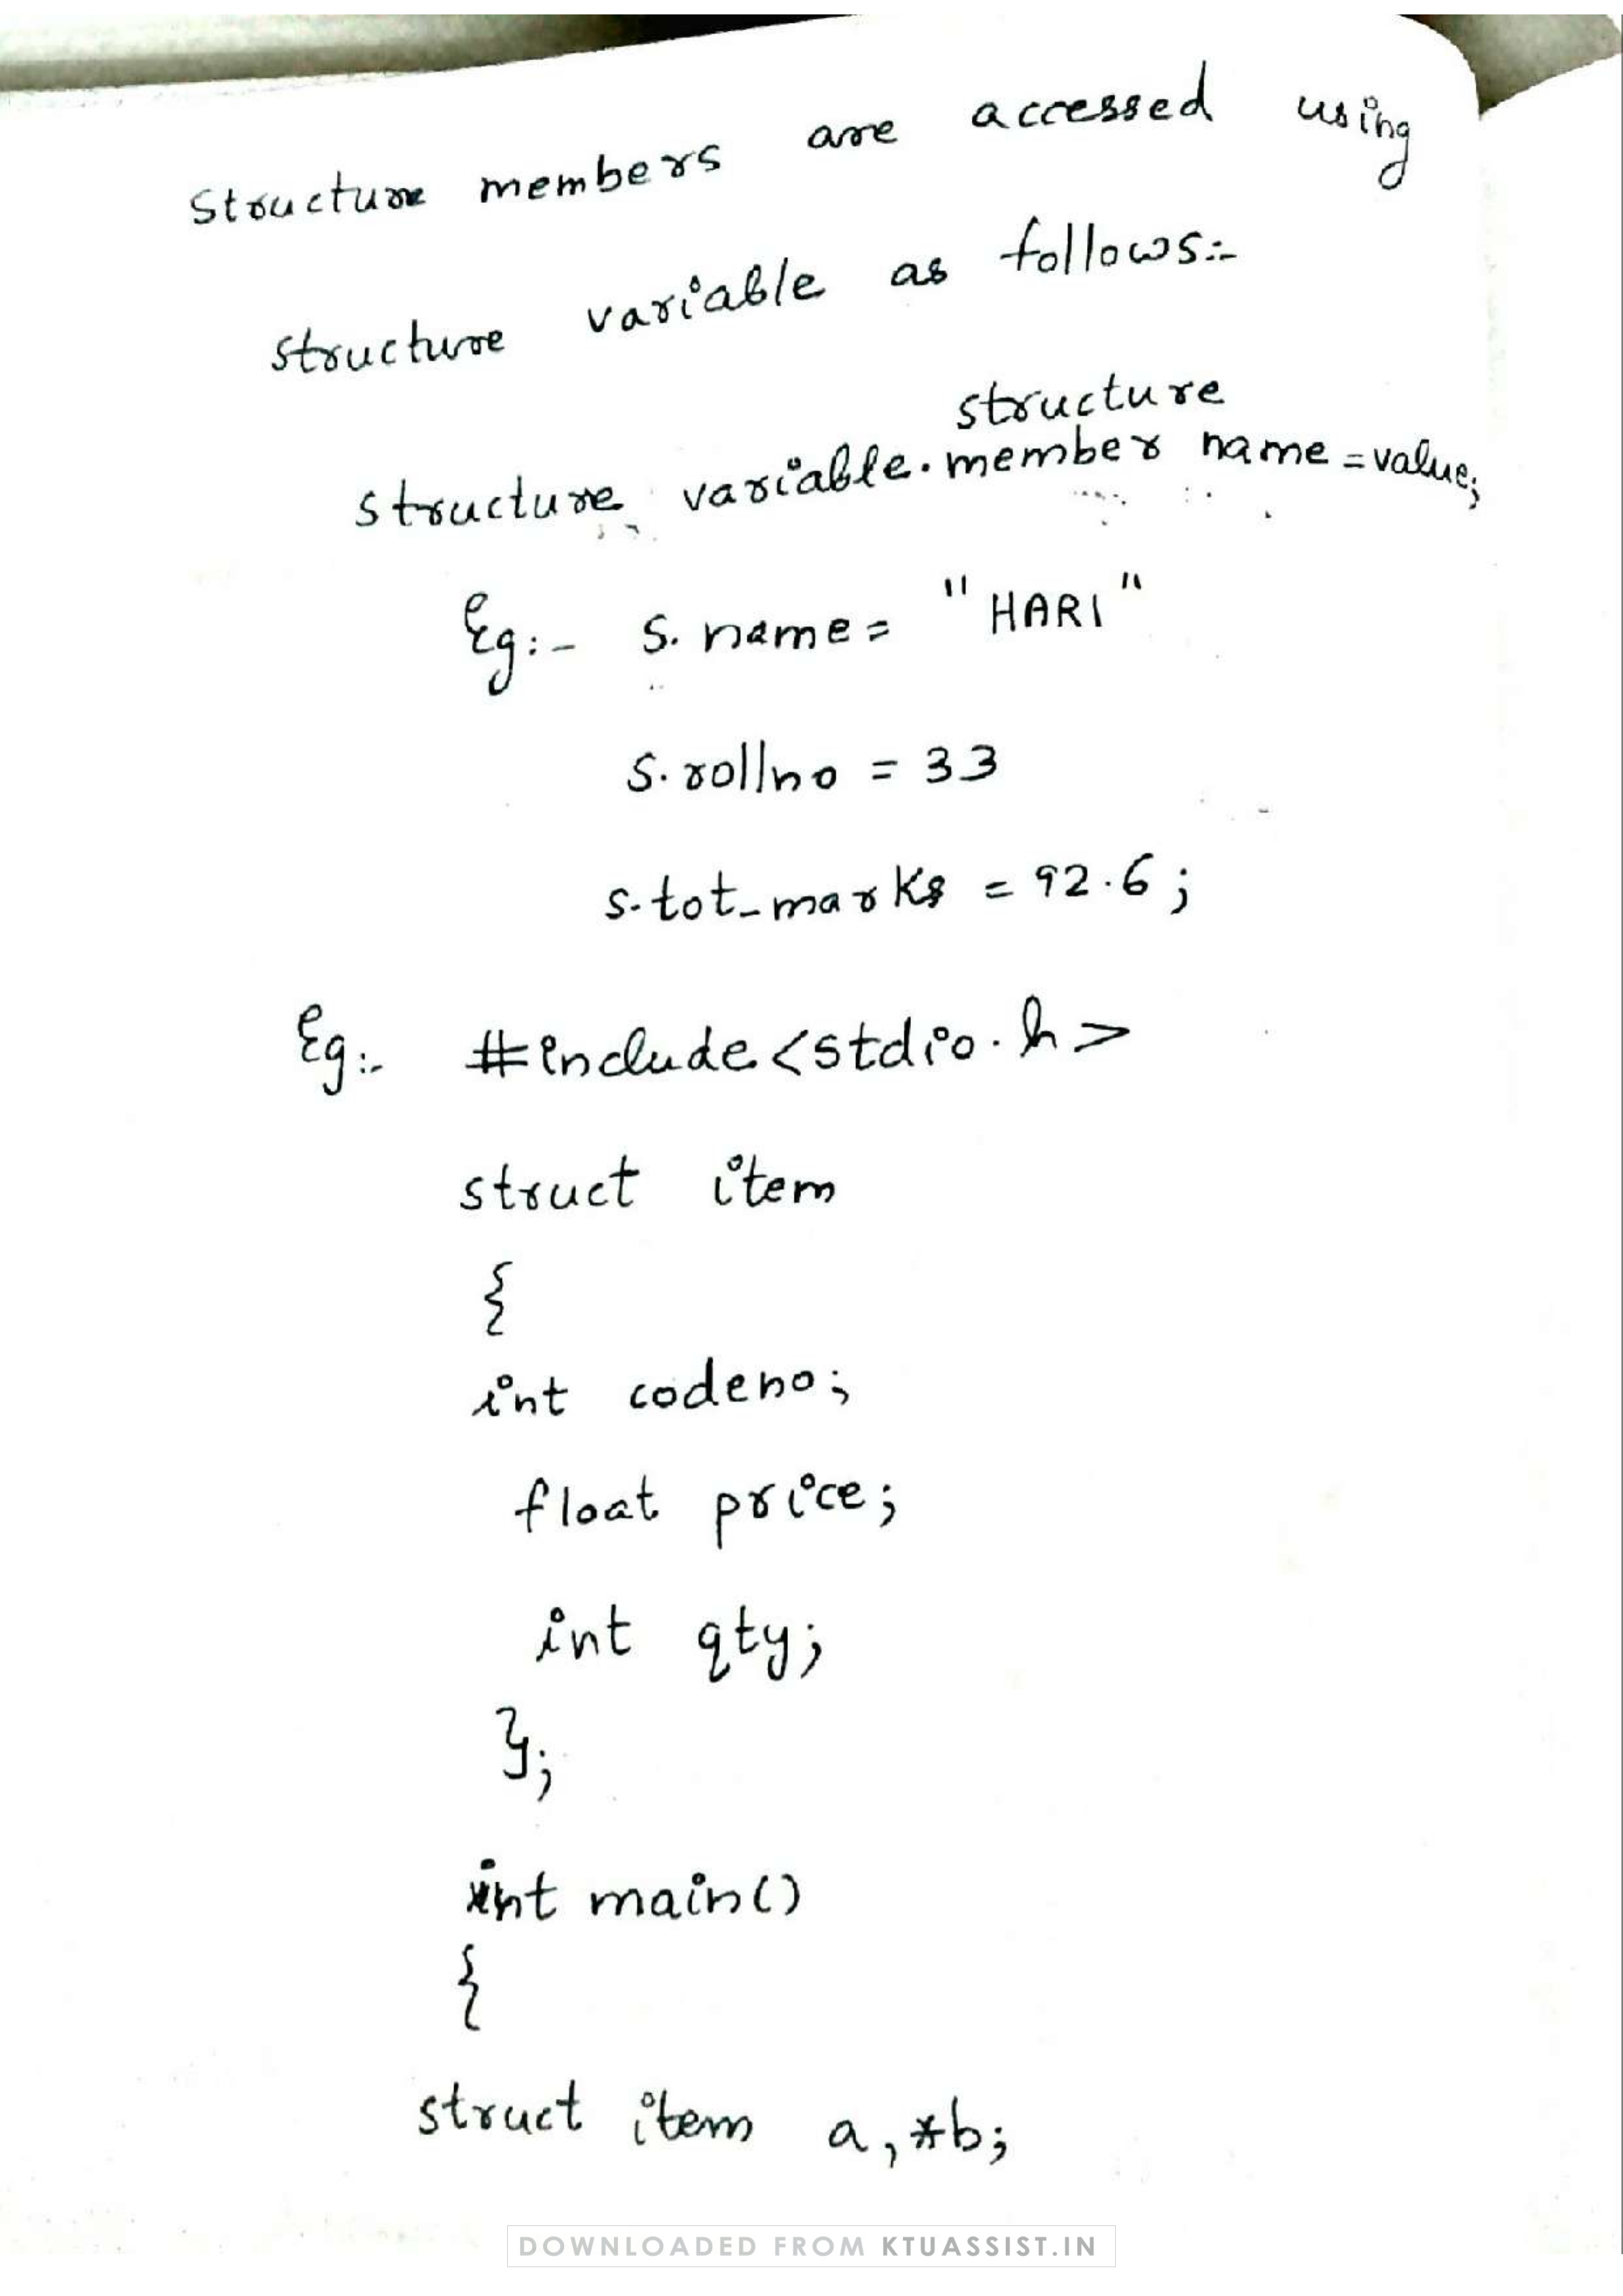 structure members are accessed using
structure variable as follows:-
structure
structure variable.member name = value;
Eg:- s.name = "HARI"
s.rollno = 33
s.tot_marks = 92.6;
Eg:- #include<stdio.h>
struct item
{
int codeno;
float price;
int qty;
};
int main()
{
struct item a,*b;
DOWNLOADED FROM KTUASSIST.IN